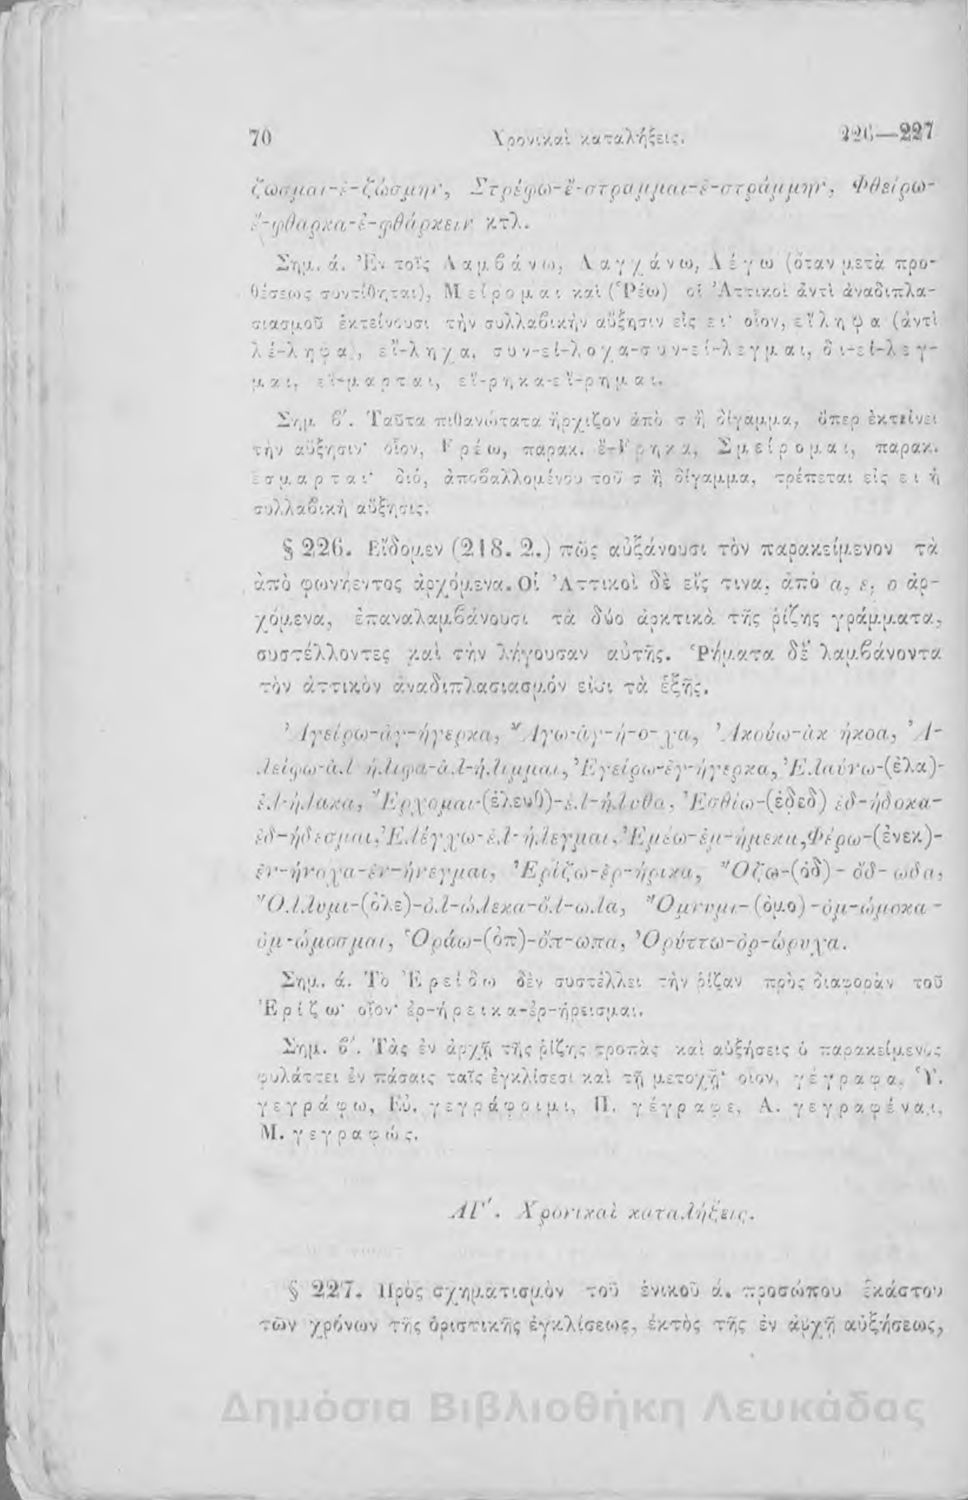 70 Χρονικαὶ καταλήξεις. 226—227
ζωσμαι-ἐ-ζώσμην, Στρέφω-ἔ-στραμμαι-ἐ-στράμμην, Φθείρω-
ἔ-φθαρκα-ἐ-φθάρκειν κτλ.
Σημ. ά. Ἐν τοῖς Λαμβάνω, Λαγχάνω, Λέγω (ὅταν μετὰ προ-
θέσεως συντίθηται), Μείρομαι καὶ (Ῥέω) οἱ Ἀττικοὶ ἀντὶ ἀναδιπλα-
σιασμοῦ ἐκτείνουσι τὴν συλλαβικὴν αὔξησιν εἰς ει· οἷον, εἴληφα (ἀντὶ
λέ-ληφα), εἴ-ληχα, συν-εί-λοχα-συν-εί-λεγμαι, δι-εί-λεγ-
μαι, εἵ-μαρται, εἴ-ρηκα-εἴ-ρημαι.
Σημ. β΄. Ταῦτα πιθανώτατα ἤρχιζον ἀπὸ σ ἢ δίγαμμα, ὅπερ ἐκτείνει
τὴν αὔξησιν· οἷον, Fρέω, παρακ. ἔ-Fρηκα, Σμείρομαι, παρακ.
ἔσμαρται· διό, ἀποβαλλομένου τοῦ σ ἢ δίγαμμα, τρέπεται εἰς ει ἡ
συλλαβικὴ αὔξησις.
§ 226. Εἴδομεν (218. 2.) πῶς αὐξάνουσι τὸν παρακείμενον τὰ
ἀπὸ φωνήεντος ἀρχόμενα. Οἱ Ἀττικοὶ δὲ εἴς τινα, ἀπὸ α, ε, ο ἀρ-
χόμενα, ἐπαναλαμβάνουσι τὰ δύο ἀρκτικὰ τῆς ῥίζης γράμματα,
συστέλλοντες καὶ τὴν λήγουσαν αὐτῆς. Ῥήματα δὲ λαμβάνοντα
τὸν ἀττικὸν ἀναδιπλασιασμόν εἰσι τὰ ἑξῆς.
Ἀγείρω-ἀγ-ήγερκα, Ἄγω-ἀγ-ή-ο-χα, Ἀκούω-ἀκ ήκοα, Ἀ-
λείφω-ἀλ ήλιφα-ἀλ-ήλιμμαι, Ἐγείρω-ἐγ-ήγερκα, Ἐλαύνω-(ἐλα)-
ἐλ-ήλακα, Ἔρχομαι-(ἐλευθ)-ἐλ-ήλυθα, Ἐσθίω-(ἐδεδ) ἐδ-ήδοκα-
ἐδ-ήδεσμαι, Ἐλέγχω-ἐλ-ήλεγμαι, Ἐμέω-ἐμ-ήμεκα, Φέρω-(ἐνεκ)-
ἐν-ήνοχα-ἐν-ήνεγμαι, Ἐρίζω-ἐρ-ήρικα, Ὄζω-(ὀδ)-ὄδ-ωδα,
Ὄλλυμι-(ὀλε)-ὀλ-ώλεκα-ὄλ-ωλα, Ὄμνυμι-(ὀμο)-ὀμ-ώμοκα-
ὀμ-ώμοσμαι, Ὁράω-(ὀπ)-ὄπ-ωπα, Ὀρύττω-ὀρ-ώρυχα.
Σημ. ά. Τὸ Ἐρείδω δὲν συστέλλει τὴν ῥίζαν πρὸς διαφορὰν τοῦ
Ἐρίζω· οἷον· ἐρ-ήρεικα-ἐρ-ήρεισμαι.
Σημ. β΄. Τὰς ἐν ἀρχῇ τῆς ῥίζης τροπὰς καὶ αὐξήσεις ὁ παρακείμενος
φυλάττει ἐν πάσαις ταῖς ἐγκλίσεσι καὶ τῇ μετοχῇ· οἷον, γέγραφα, Ὑ.
γεγράφω, Εὐ. γεγράφοιμι, Π. γέγραφε, Α. γεγραφέναι,
Μ. γεγραφώς.
ΛΓ΄. Χρονικαὶ καταλήξεις.
§ 227. Πρὸς σχηματισμὸν τοῦ ἑνικοῦ ά. προσώπου ἑκάστου
τῶν χρόνων τῆς ὁριστικῆς ἐγκλίσεως, ἐκτὸς τῆς ἐν ἀρχῇ αὐξήσεως,
Δημόσια Βιβλιοθήκη Λευκάδας